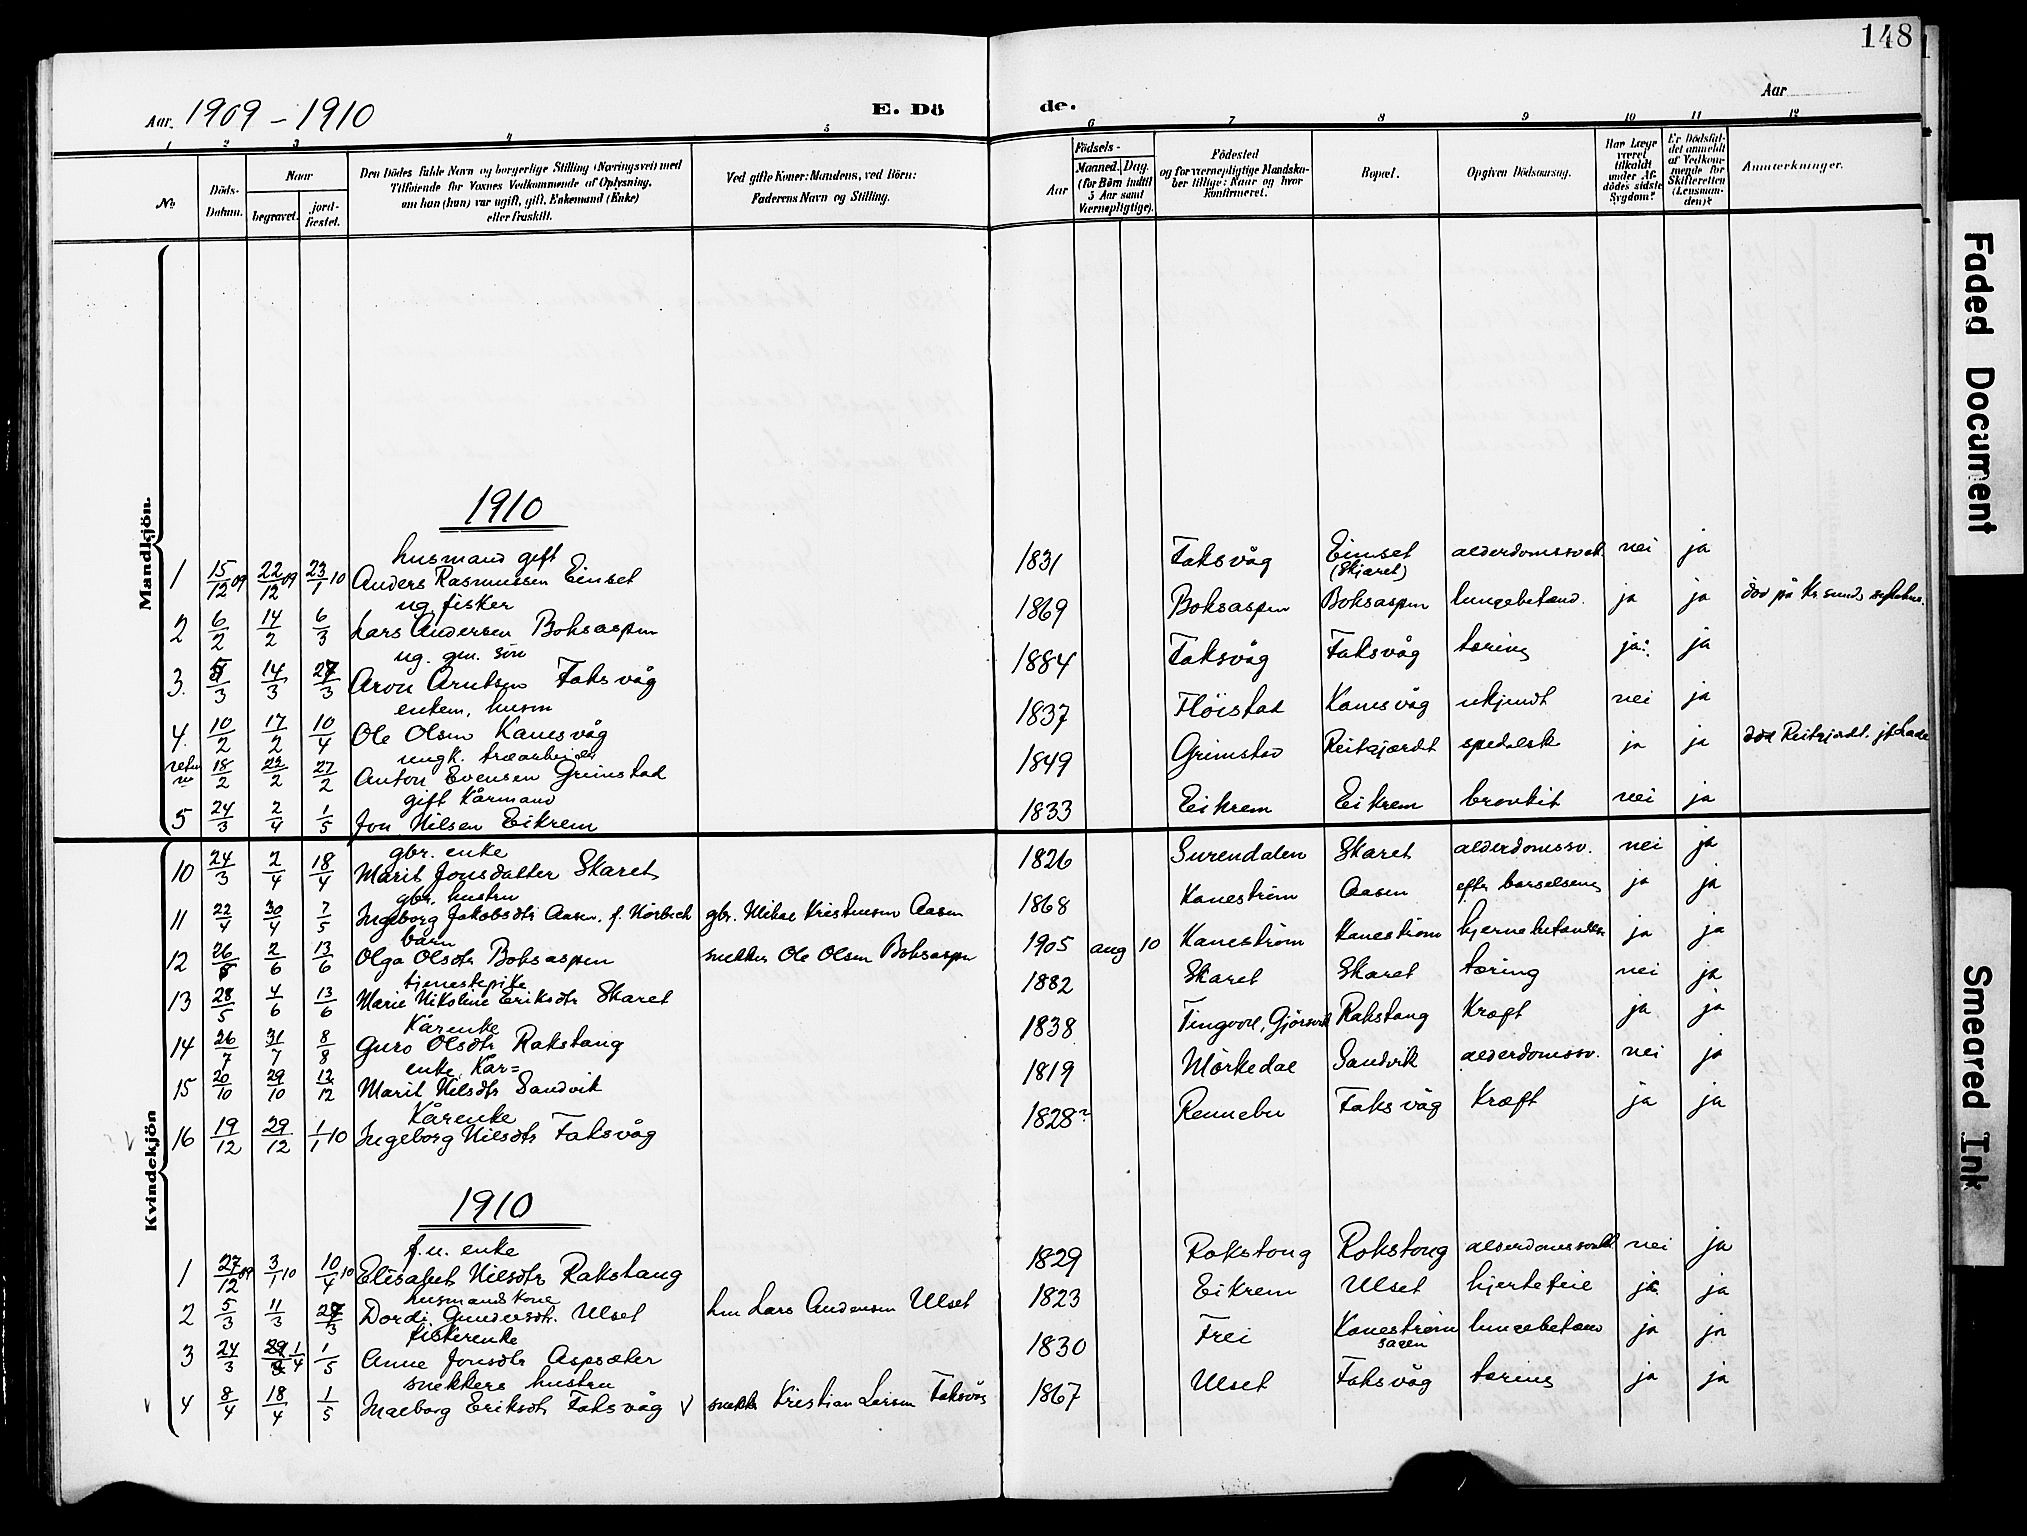 148
Aar. 1909 - 1910
E. Dö
de.
Aar
1 2 3 4 5 6 7 8 9 10 11 12
No.
Döds-Datum.
Naar
begravet.
jord-fæstet.
Den Dödes fulde Navn og borgerlige Stilling (Næringsvei) med
Tilföiende for Voxnes Vedkommende af Oplysning,
om han (hun) var ugift, gift, Enkemand (Enke)
eller fraskilt.
Ved gifte Koner: Mandens, ved Börn:
Faderens Navn og Stilling.
Födsels-
Aar
Maaned. Dag.
(for Börn indtil
5 Aar samt
Værnepligtige).
Födested
og for værnepligtige Mandska-
ber tillige: Naar og hvor
konfirmeret.
Bopæl.
Opgiven Dödsaarsag.
Har Læge
været
tilkaldt
under Af-
dödes sidste
Sygdom?
Er Dödsfal-
det anmeldt
af Vedkom-
mende for
Skifteretten
(Lensman-
den)?
Anmærkninger.
Mandkjön.
1910
husmand gift
1 15/12 09 22/12 09 23/1 10 Anders Rasmussen Eimset 1831 Faksvåg Eimset (Skjæret) alderdomssvak. nei ja
ug. fisker
2 6/2 14/2 6/3 Lars Andersen Boksaspen 1869 Boksaspen Boksaspen lungebetænd. ja ja död på Kr.sunds
ug. gm. sön
3. 5/3 14/3 27/3 Aron Arntsen Faksvåg 1884 Faksvåg Faksvåg tæring ja. ja
enkem. husm
4. 10/2 17/2 10/4 Ole Olsen Kanesvåg 1837 Flöistad Kanesvåg ukjendt nei ja
ungk. træarbeider
18/2 22/2 27/2 Anton Evensen Grimstad 1849 Grimstad Reitgjærdt spedalsk ja ja död Reitgjerdt.
gift Kårmand
5 24/3 2/4 1/5 Jon Nilsen Eikrem 1833 Eikrem Eikrem bronkit nei ja
Kvindekjön
gbr. enke
10 24/3 2/4 18/4 Marit Jonsdatter Skaret 1826 Surendalen Skaret alderdomssv. nei ja
gbr. hustru
11 22/4 30/4 7/5 Ingeborg Jakobsdtr Aasen, f. Nörbech gbr. Mikal Kristensen Aasen 1868 Kaneström Aasen efter barselseng ja ja
barn
12 26/5 2/6 13/6 Olga Olsdtr Boksaspen snekker Ole Olsen Boksaspen 1905 aug 10 Kaneström Kaneström hjernebetændelse ja ja
tjenestepike
13 28/5 4/6 13/6 Marie Nikoline Eriksdtr Skaret 1882 Skaret Skaret tæring nei ja
Kårenke
14 26/7 31/7 8/8 Guro Olsdtr Rakstang 1838 Tingvold, Gjörsvik Rakstang Kræft ja ja
enke, Kår=
15 20/10 29/10 12/12 Marit Nilsdtr Sandvik 1819 Mörkedal Sandvik alderdomssv. nei ja
Kårenke
16 19/12 29/12 1/1 10 Ingeborg Nilsdtr Faksvåg 1828? Rennebu Faksvåg Kræft ja ja
1910
f.u. enke
1 27/12 09 3/1 10 10/4 10 Elisabet Nilsdtr Rakstang 1829 Rakstang Rakstang nei ja
husmandskone
2 5/3 11/3 27/3 Dordi Gundersdtr. Ulset hm Lars Andersen Ulset 1823 Eikrem Ulset hjertefeil ja ja
fiskerenke
3 24/3 29/3 1/4 1/5 Anne Jonsdtr Aspsæter 1830 Frei Kaneström sagen lungebetænd ja ja
snekkers hustru
V 4 8/4 18/4 1/5 Ingeborg Eriksdtr Faksvåg V snekker Kristian Larsen Faksvåg 1867 Ulset Faksvåg tæring ja ja
Faded Document
Smeared Ink